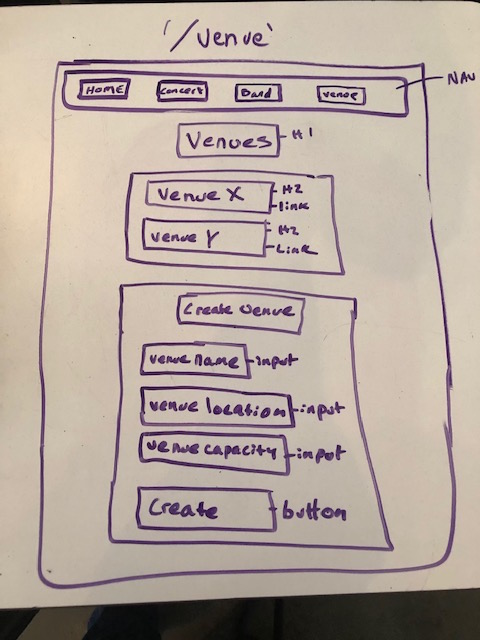 '/venue'
HOME concert Band venue NAV
Venues H1
Venue X H2
link
venue Y H2
Link
Create venue
venue name input
venue location input
venue capacity input
Create button